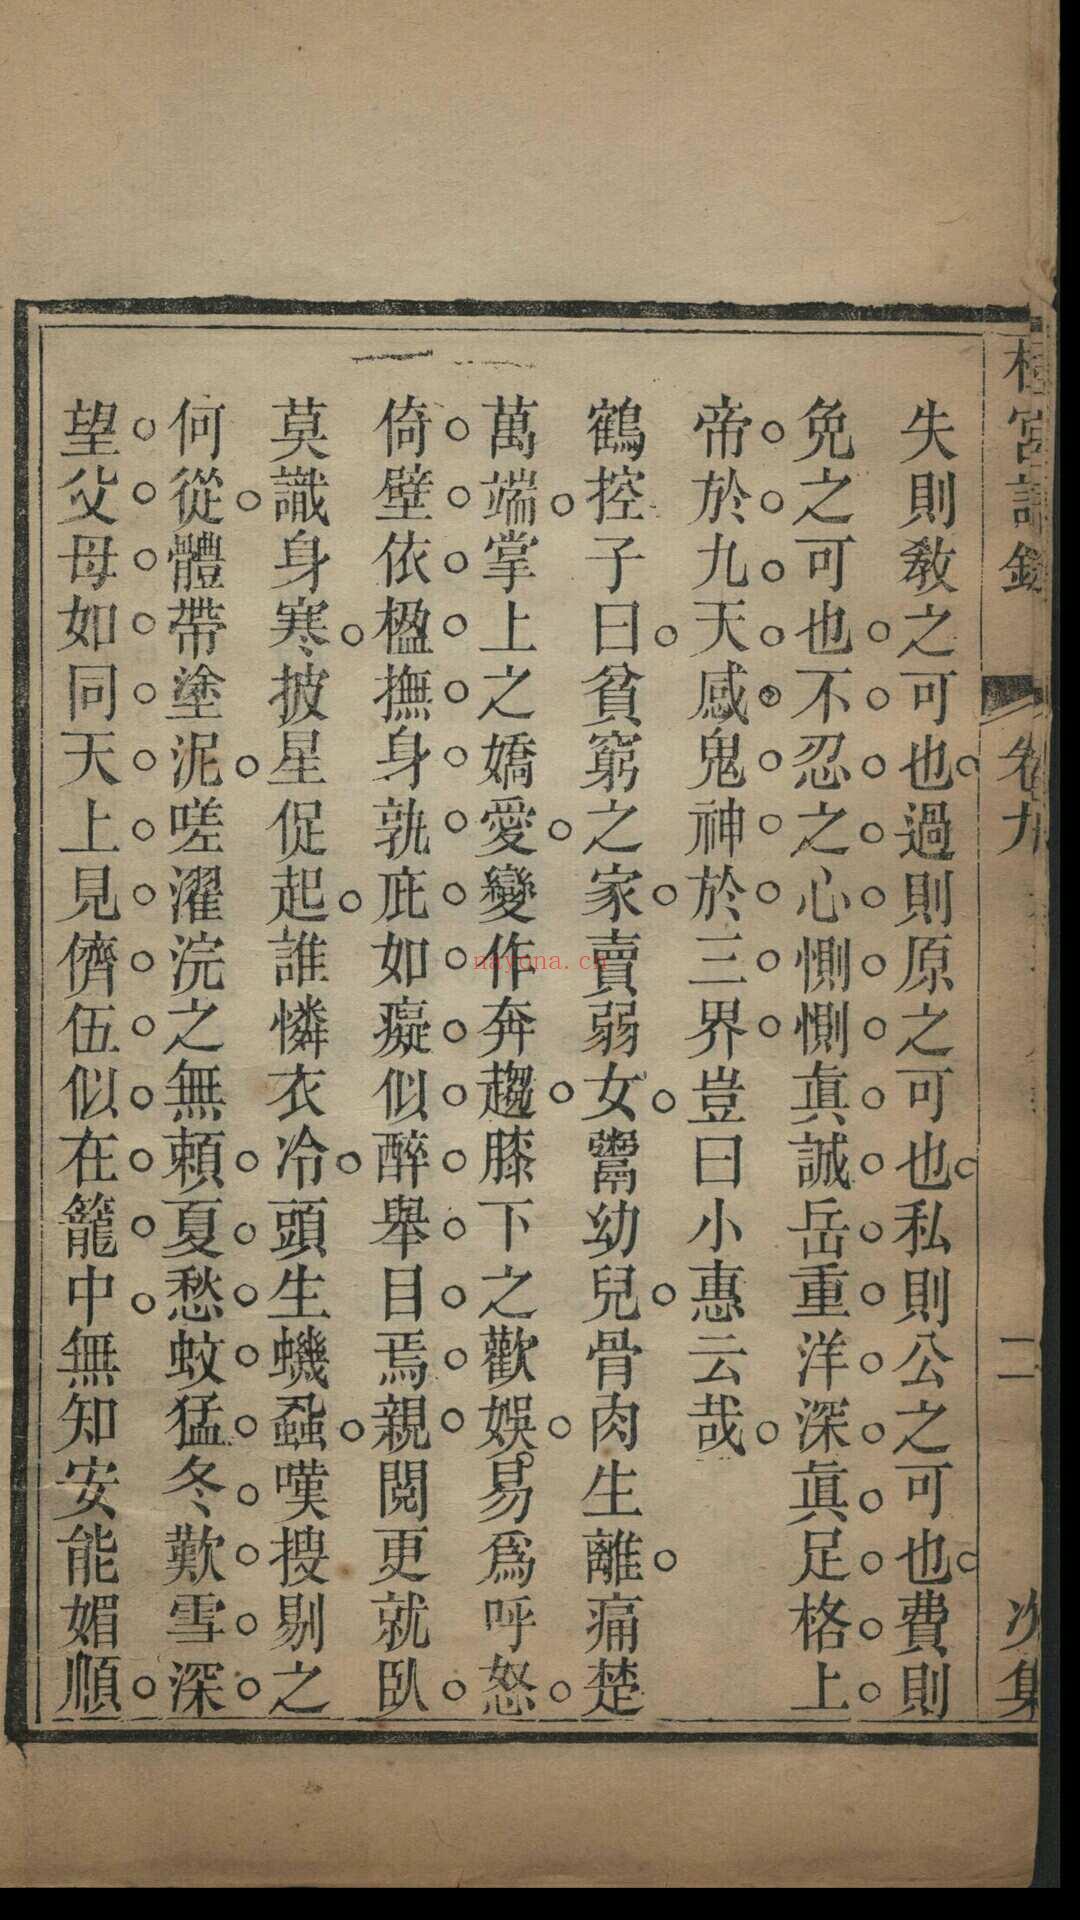 桂宮記錄 卷九 二 次集
失則教之可也過則原之可也私則公之可也費則
免之可也不忍之心惻惻眞誠岳重洋深眞足格上
帝於九天感鬼神於三界豈曰小惠云哉
鶴控子曰貧窮之家賣弱女鬻幼兒骨肉生離痛楚
萬端掌上之嬌愛變作奔趨膝下之歡娛易爲呼怒
倚壁依楹撫身孰庇如癡似醉舉目焉親閱更就臥
莫識身寒披星促起誰憐衣冷頭生蟣蝨嘆搜剔之
何從體帶塗泥嗟濯浣之無賴夏愁蚊猛冬歎雪深
望父母如同天上見儕伍似在籠中無知安能媚順
nayona.cn